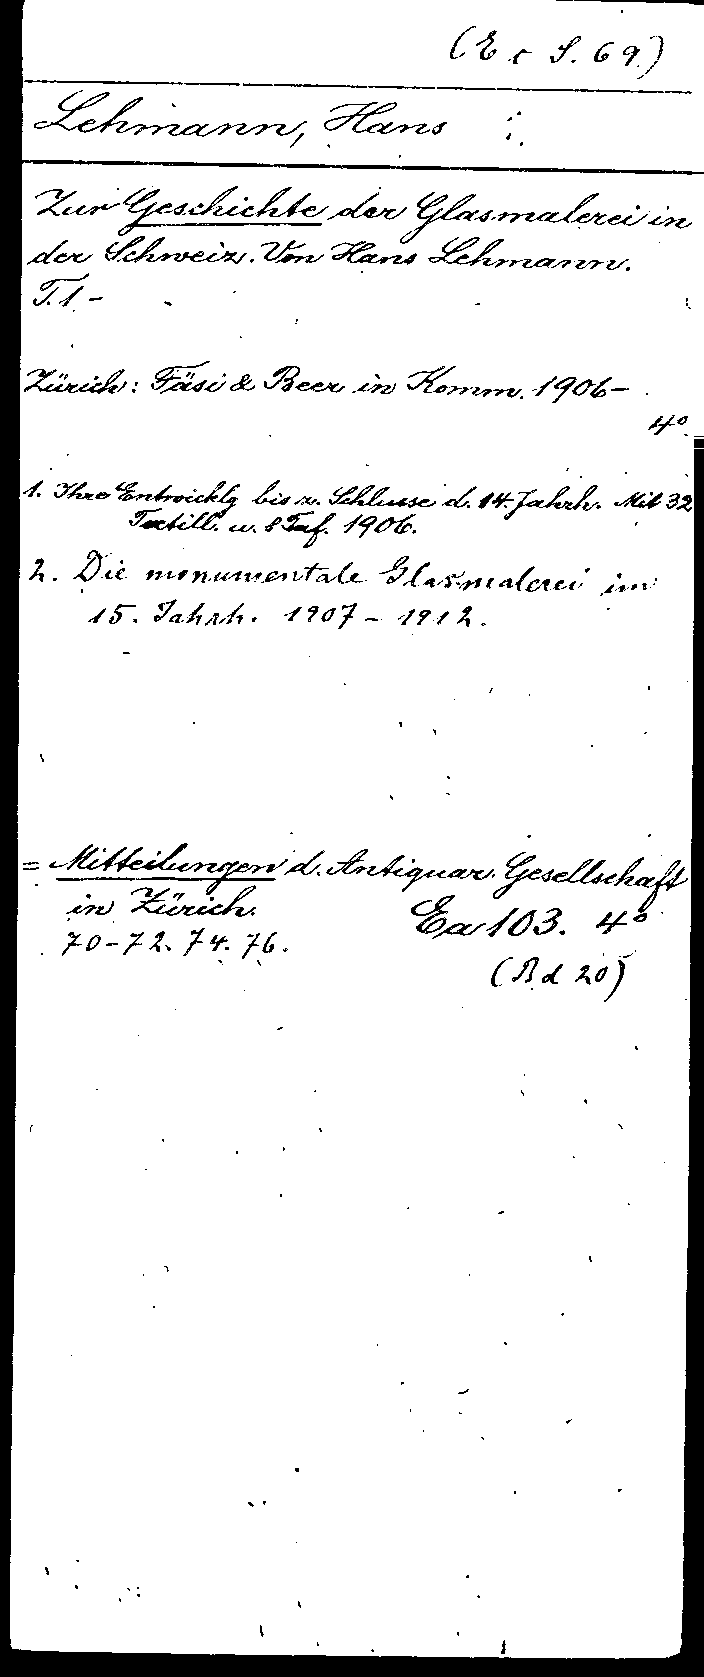 (E c S. 69.)
Lehmann, Hans
Zur Geschichte der Glasmalerei in
der Schweiz. Von Hans Lehmann.
T. 1 -
Zürich: Fäsi & Beer in Komm. 1906-
4°
1. Ihre Entwicklg bis z. Schlusse d. 14. Jahrh. Mit 32
Textill. u. 8 Taf. 1906.
2. Die monumentale Glasmalerei im
15. Jahrh. 1907 - 1912.
= Mitteilungen d. Antiquar. Gesellschaft
in Zürich.
Ea 103. 4°
70-72. 74. 76.
(Bd 20)